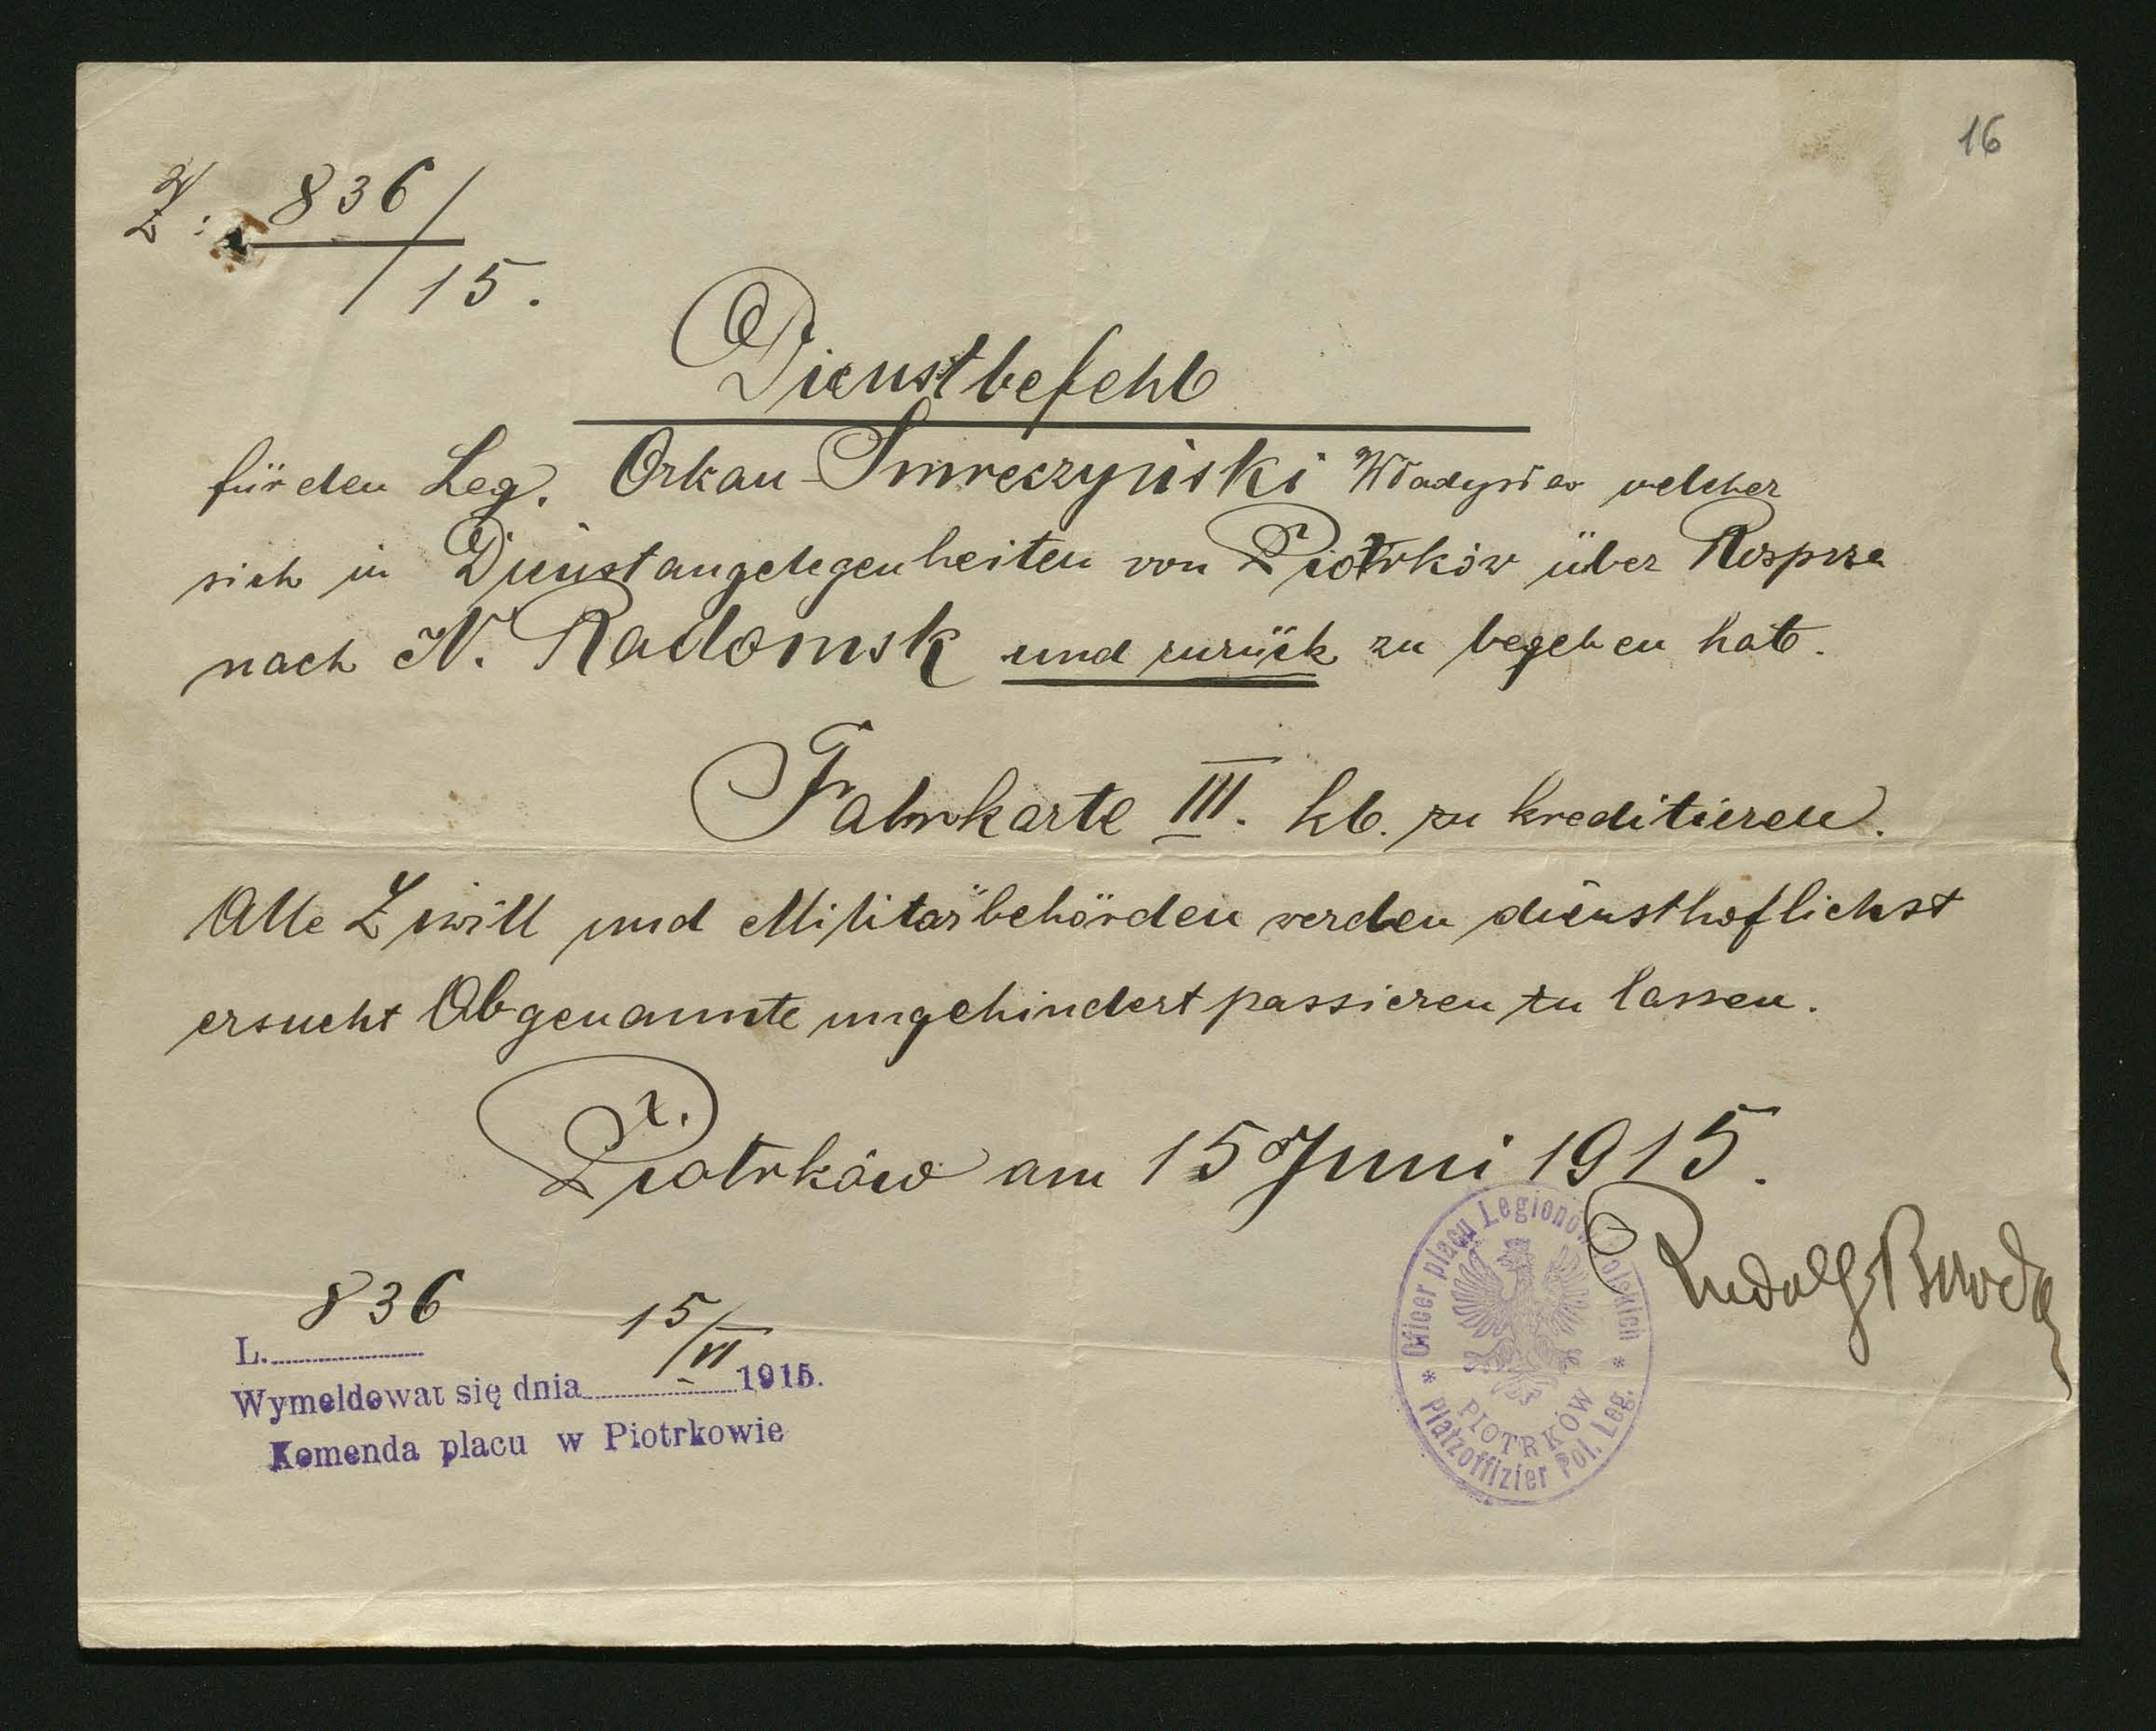 16
Z: 836/15.
Dienstbefehl
für den Leg. Orkan-Smreczyński Władysław welcher
sich in Dienstangelegenheiten von Piotrków über Rosprza
nach N. Radomsk und zurück zu begeben hat.
Fahrkarte III. kl. zu kreditieren.
Alle Ziwill und Militärbehörden werden diensthoflichst
ersucht Obgenannte ungehindert passieren zu lassen.
Piotrków am 15 Juni 1915.
Rudolf
Oficer placu Legionów Polskich
PIOTRKÓW
* Platzoffizier Pol. Leg. *
L. 836
Wymeldował się dnia 15/VI 1915.
Komenda placu w Piotrkowie